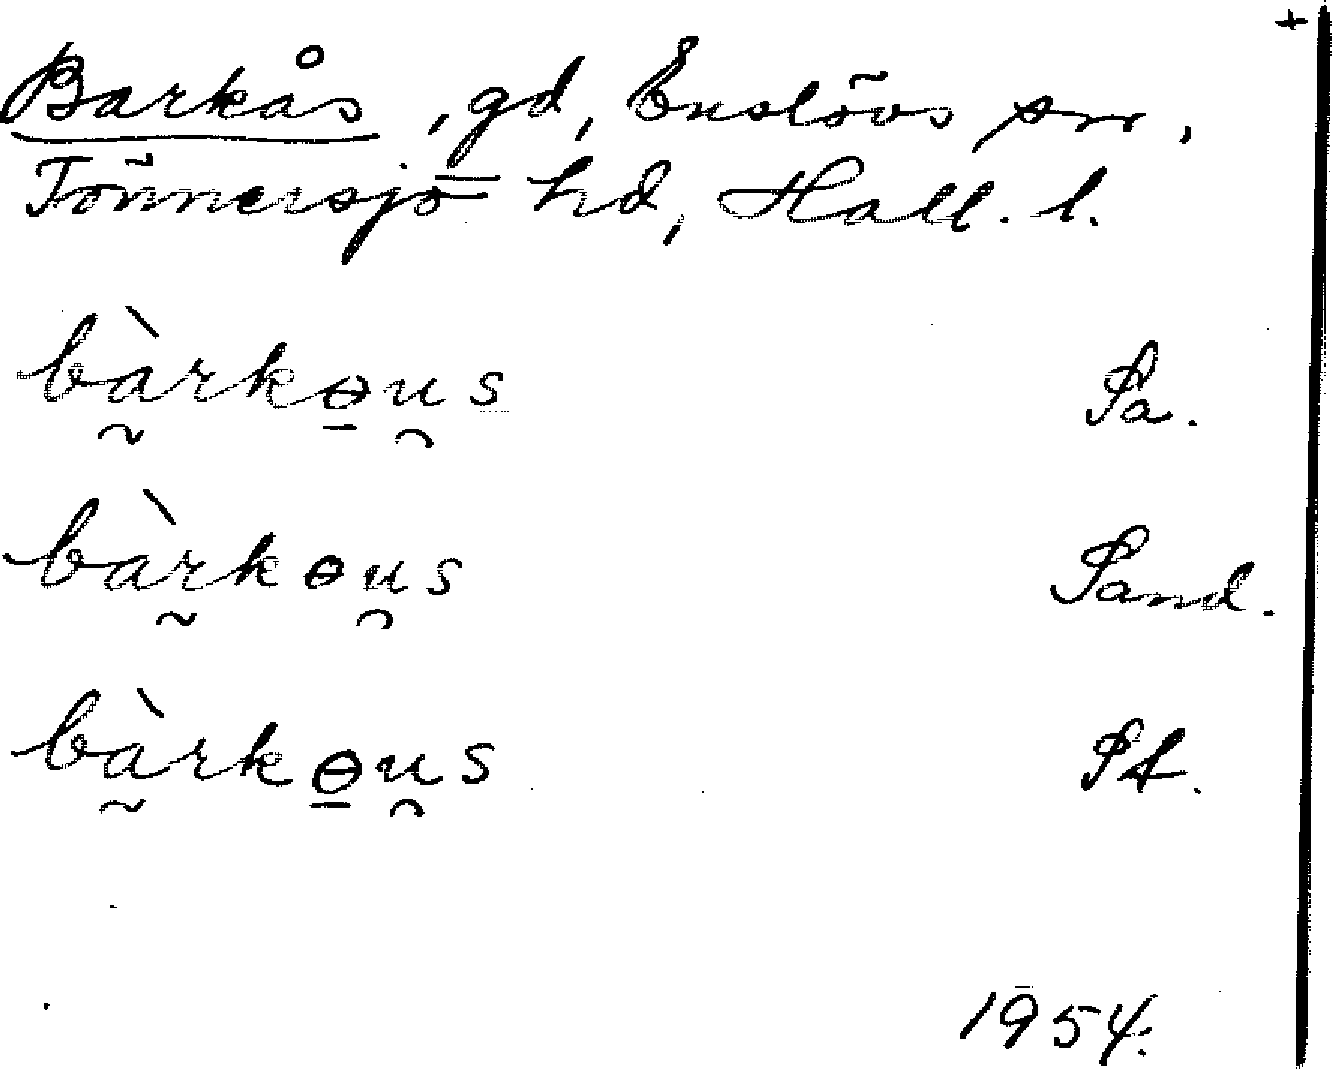 +
Barkås, gd, Enslövs sn,
Tönnersjö hd, Hall. l.
bàrkɵu̯s Pa.
bàrkɵu̯s Sand.
bàrkɵu̯s
1954.